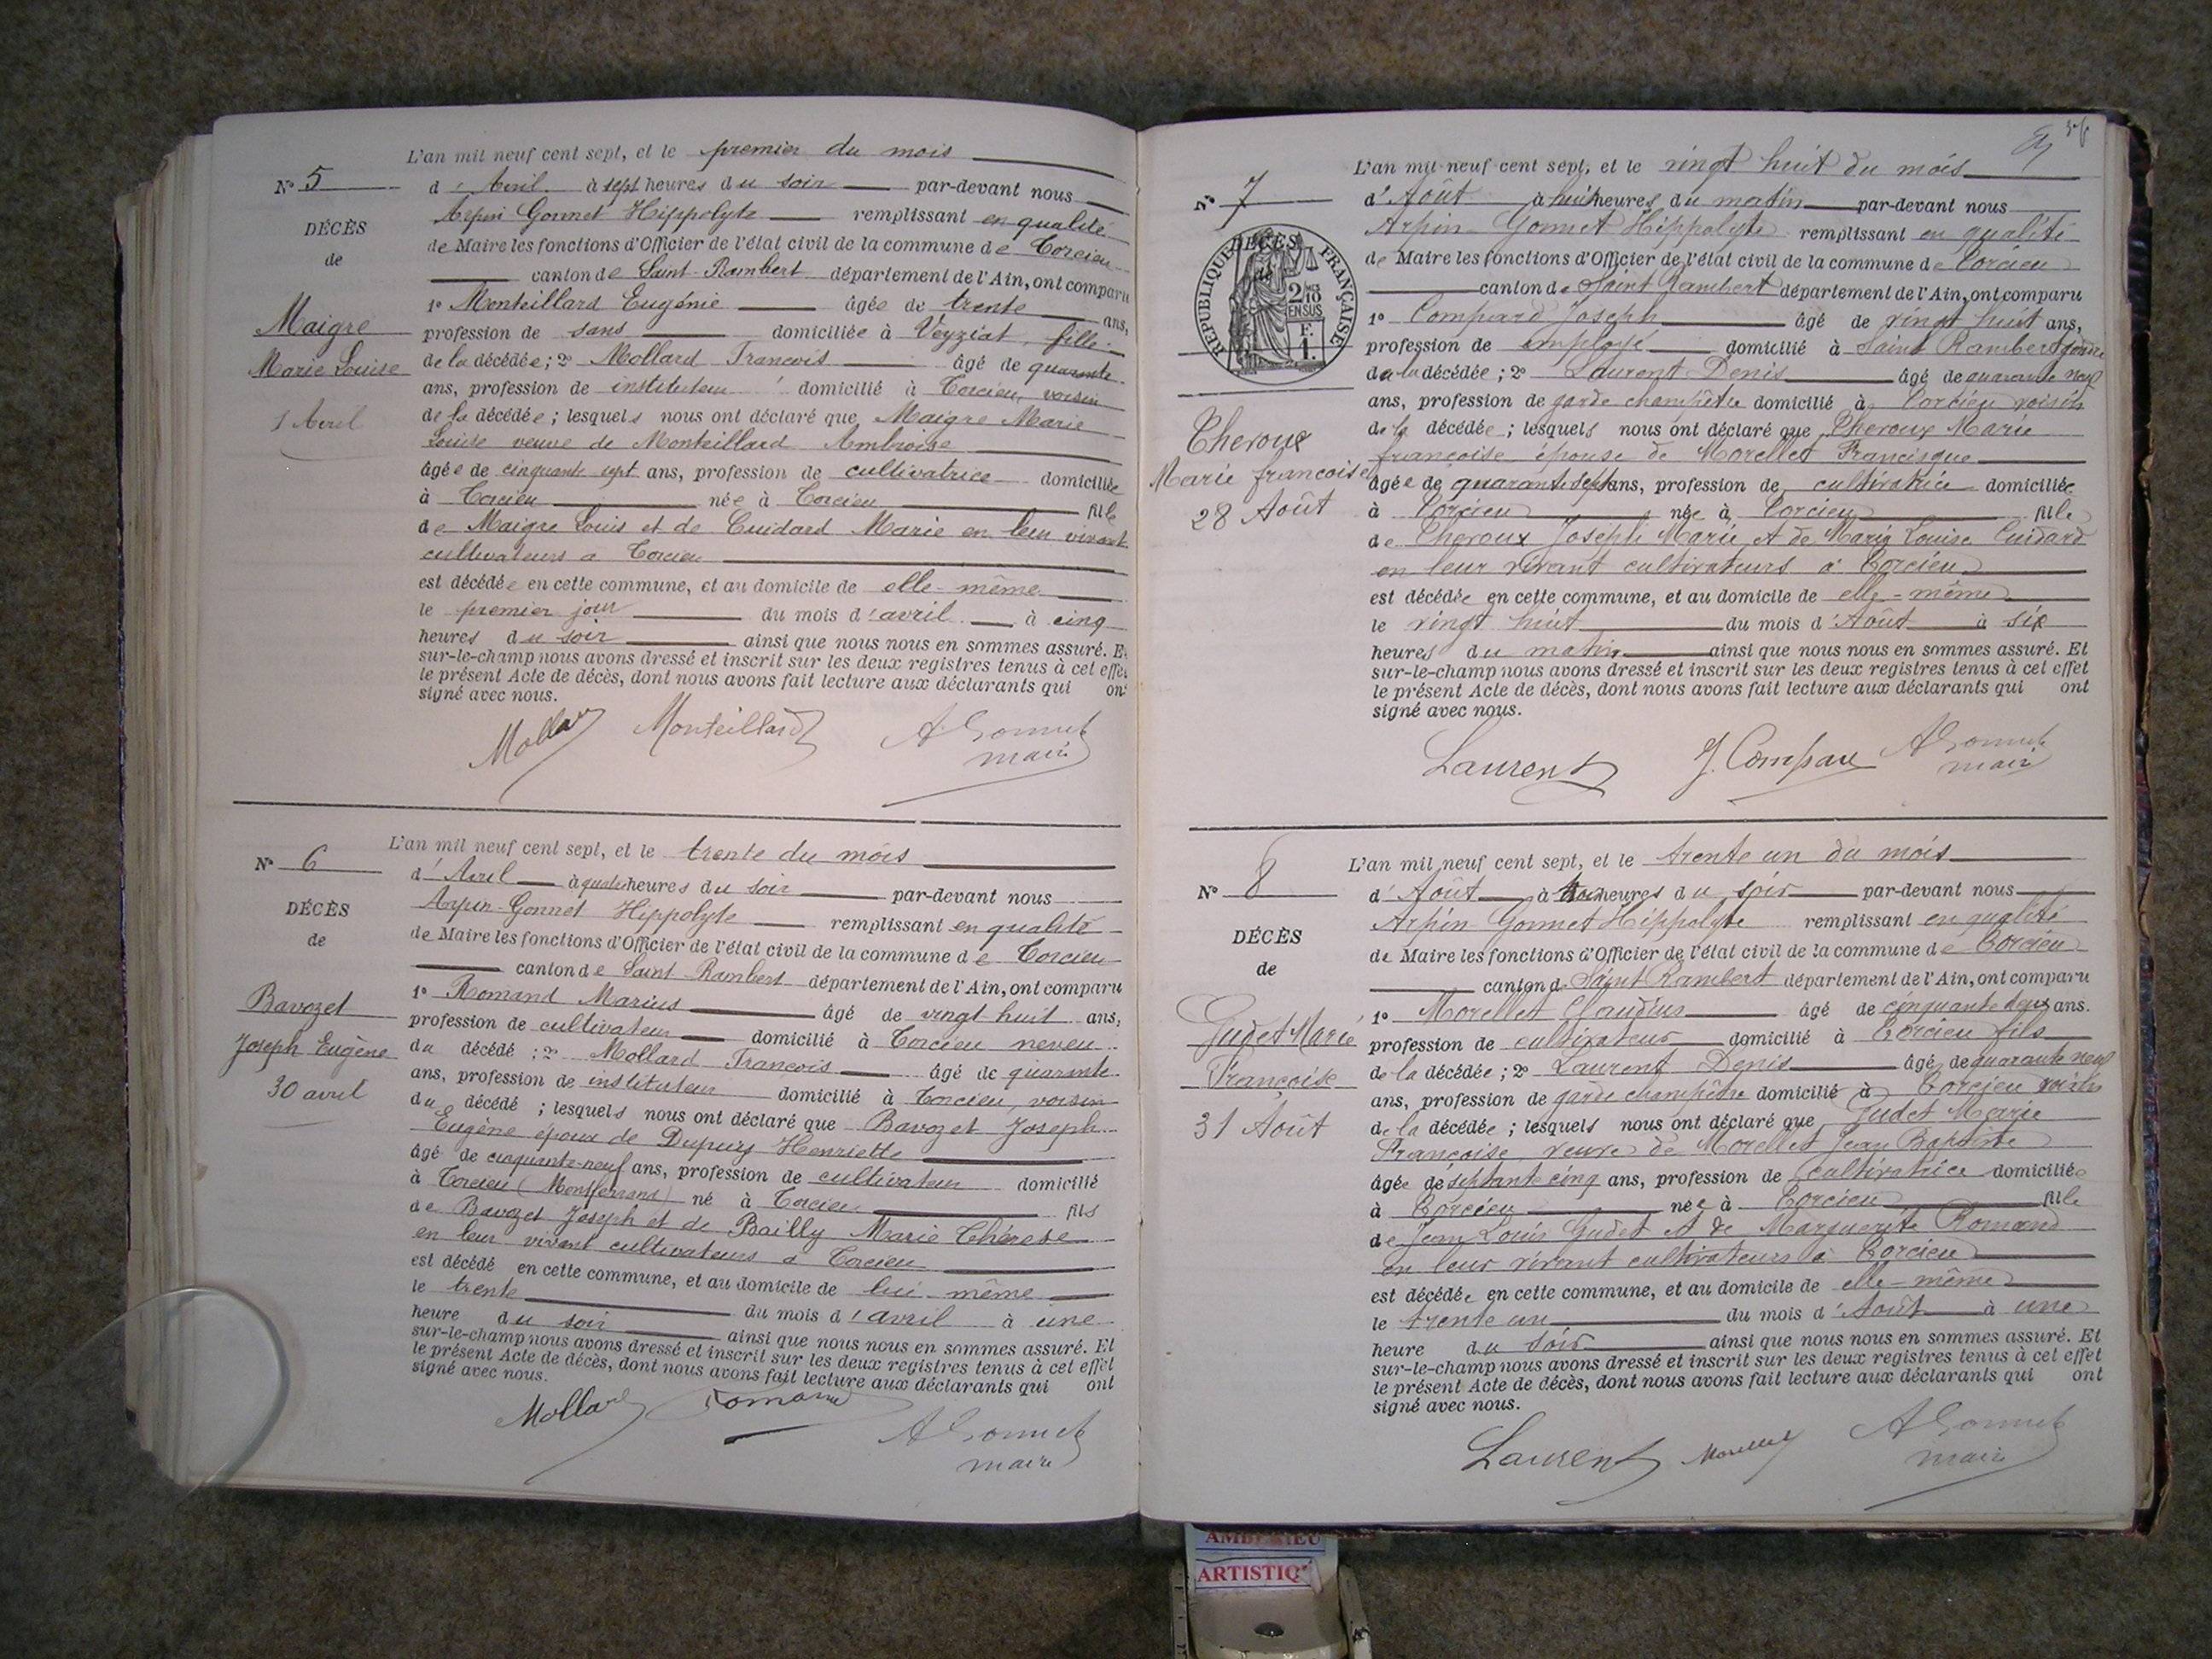 L'an mil neuf cent sept, et le premier du mois
N° 5
d'Avril à sept heures du soir par-devant nous
Arpin Gonnet Hippolyte remplissant en qualité
DÉCÈS
de Maire les fonctions d'Officier de l'état civil de la commune de Torcieu
de
canton de Saint-Rambert département de l'Ain, ont comparu
1° Monteillard Eugénie âgée de trente ans,
Maigre
profession de sans domiciliée à Veyziat, fille
Marie Louise
de la décédée; 2° Mollard François âgé de quarante
ans, profession de instituteur domicilié à Torcieu, voisin
1 Avril
de la décédée; lesquels nous ont déclaré que Maigre Marie
Louise veuve de Monteillard Ambroise
âgée de cinquante sept ans, profession de cultivatrice domiciliée
à Torcieu née à Torcieu fille
de Maigre Louis et de Cuidard Marie en leur vivant
cultivateurs à Torcieu
est décédée en cette commune, et au domicile de elle-même
le premier jour du mois d'avril à cinq
heures du soir ainsi que nous nous en sommes assuré. Et
sur-le-champ nous avons dressé et inscrit sur les deux registres tenus à cet effet
le présent Acte de décès, dont nous avons fait lecture aux déclarants qui ont
signé avec nous.
Mollard Monteillard A Gonnet
maire
L'an mil neuf cent sept, et le trente du mois
N° 6
d'Avril à quatre heures du soir par-devant nous
Arpin-Gonnet Hippolyte remplissant en qualité
DÉCÈS
de Maire les fonctions d'Officier de l'état civil de la commune de Torcieu
de
canton de Saint-Rambert département de l'Ain, ont comparu
1° Romand Marius âgé de vingt huit ans,
Bavozet
profession de cultivateur domicilié à Torcieu neveu
Joseph Eugène
du décédé; 2° Mollard François âgé de quarante
ans, profession de instituteur domicilié à Torcieu, voisin
30 avril
du décédé; lesquels nous ont déclaré que Bavozet Joseph
Eugène époux de Dupuy Henriette
âgé de cinquante-neuf ans, profession de cultivateur domicilié
à Torcieu (Montferrand) né à Torcieu fils
de Bavozet Joseph et de Bailly Marie Thérèse
en leur vivant cultivateurs à Torcieu
est décédé en cette commune, et au domicile de lui-même
le trente du mois d'avril à une
heure du soir ainsi que nous nous en sommes assuré. Et
sur-le-champ nous avons dressé et inscrit sur les deux registres tenus à cet effet
le présent Acte de décès, dont nous avons fait lecture aux déclarants qui ont
signé avec nous.
Mollard Romand A Gonnet
maire
L'an mil neuf cent sept, et le vingt huit du mois
N° 7
d'Août à huit heures du matin par-devant nous
Arpin-Gonnet Hippolyte remplissant en qualité
DÉCÈS
de Maire les fonctions d'Officier de l'état civil de la commune de Torcieu
RÉPUBLIQUE FRANÇAISE
canton de Saint Rambert département de l'Ain, ont comparu
2/10 EN SUS
1° Compard Joseph âgé de vingt huit ans,
F. 1.
profession de employé domicilié à Saint Rambert gendre
de la décédée; 2° Laurent Denis âgé de quarante neuf
ans, profession de garde champêtre domicilié à Torcieu voisin
Theroux
de la décédée; lesquels nous ont déclaré que Theroux Marie
françoise épouse de Morellet Francisque
Marie françoise
âgée de quarante sept ans, profession de cultivatrice domiciliée
28 Août
à Torcieu née à Torcieu fille
de Theroux Joseph Marie et de Marie Louise Cuidard
en leur vivant cultivateurs à Torcieu
est décédée en cette commune, et au domicile de elle-même
le vingt huit du mois d'Août à six
heures du matin ainsi que nous nous en sommes assuré. Et
sur-le-champ nous avons dressé et inscrit sur les deux registres tenus à cet effet
le présent Acte de décès, dont nous avons fait lecture aux déclarants qui ont
signé avec nous.
Laurent J. Compard A Gonnet
maire
L'an mil neuf cent sept, et le trente un du mois
N° 8
d'Août à trois heures du soir par-devant nous
Arpin-Gonnet Hippolyte remplissant en qualité
DÉCÈS
de Maire les fonctions d'Officier de l'état civil de la commune de Torcieu
de
canton de Saint Rambert département de l'Ain, ont comparu
1° Morellet Claudius âgé de cinquante deux ans.
Gudet Marie
profession de cultivateur domicilié à Torcieu fils
de la décédée; 2° Laurent Denis âgé de quarante neuf
Françoise
ans, profession de garde champêtre domicilié à Torcieu voisin
31 Août
de la décédée; lesquels nous ont déclaré que Gudet Marie
Françoise veuve de Morellet Jean Baptiste
âgée de septante cinq ans, profession de cultivatrice domiciliée
à Torcieu née à Torcieu fille
de Jean Louis Gudet et de Marguerite Romand
en leur vivant cultivateurs à Torcieu
est décédée en cette commune, et au domicile de elle-même
le trente un du mois d'Août à une
heure du soir ainsi que nous nous en sommes assuré. Et
sur-le-champ nous avons dressé et inscrit sur les deux registres tenus à cet effet
le présent Acte de décès, dont nous avons fait lecture aux déclarants qui ont
signé avec nous.
Laurent Morellet A Gonnet
maire
AMBERIEU
ARTISTIQ